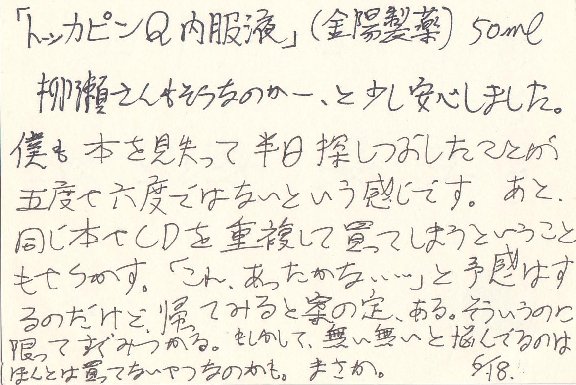 「トッカピンQ内服液」(金陽製薬) 50ml
柳瀬さんもそうなのかー、と少し安心しました。
僕も本を見失って半日探しつぶしたことが
五度や六度ではないという感じです。あと、
同じ本やCDを重複して買ってしまうということ
もやらかす。「これ、あったかな、……」と予感はす
るのだけど、帰ってみると案の定、ある。そういうのに
限ってすぐみつかる。もしかして、無い無いと悩んでるのは
ほんとは買ってないやつなのかも。まさか。 5/18.